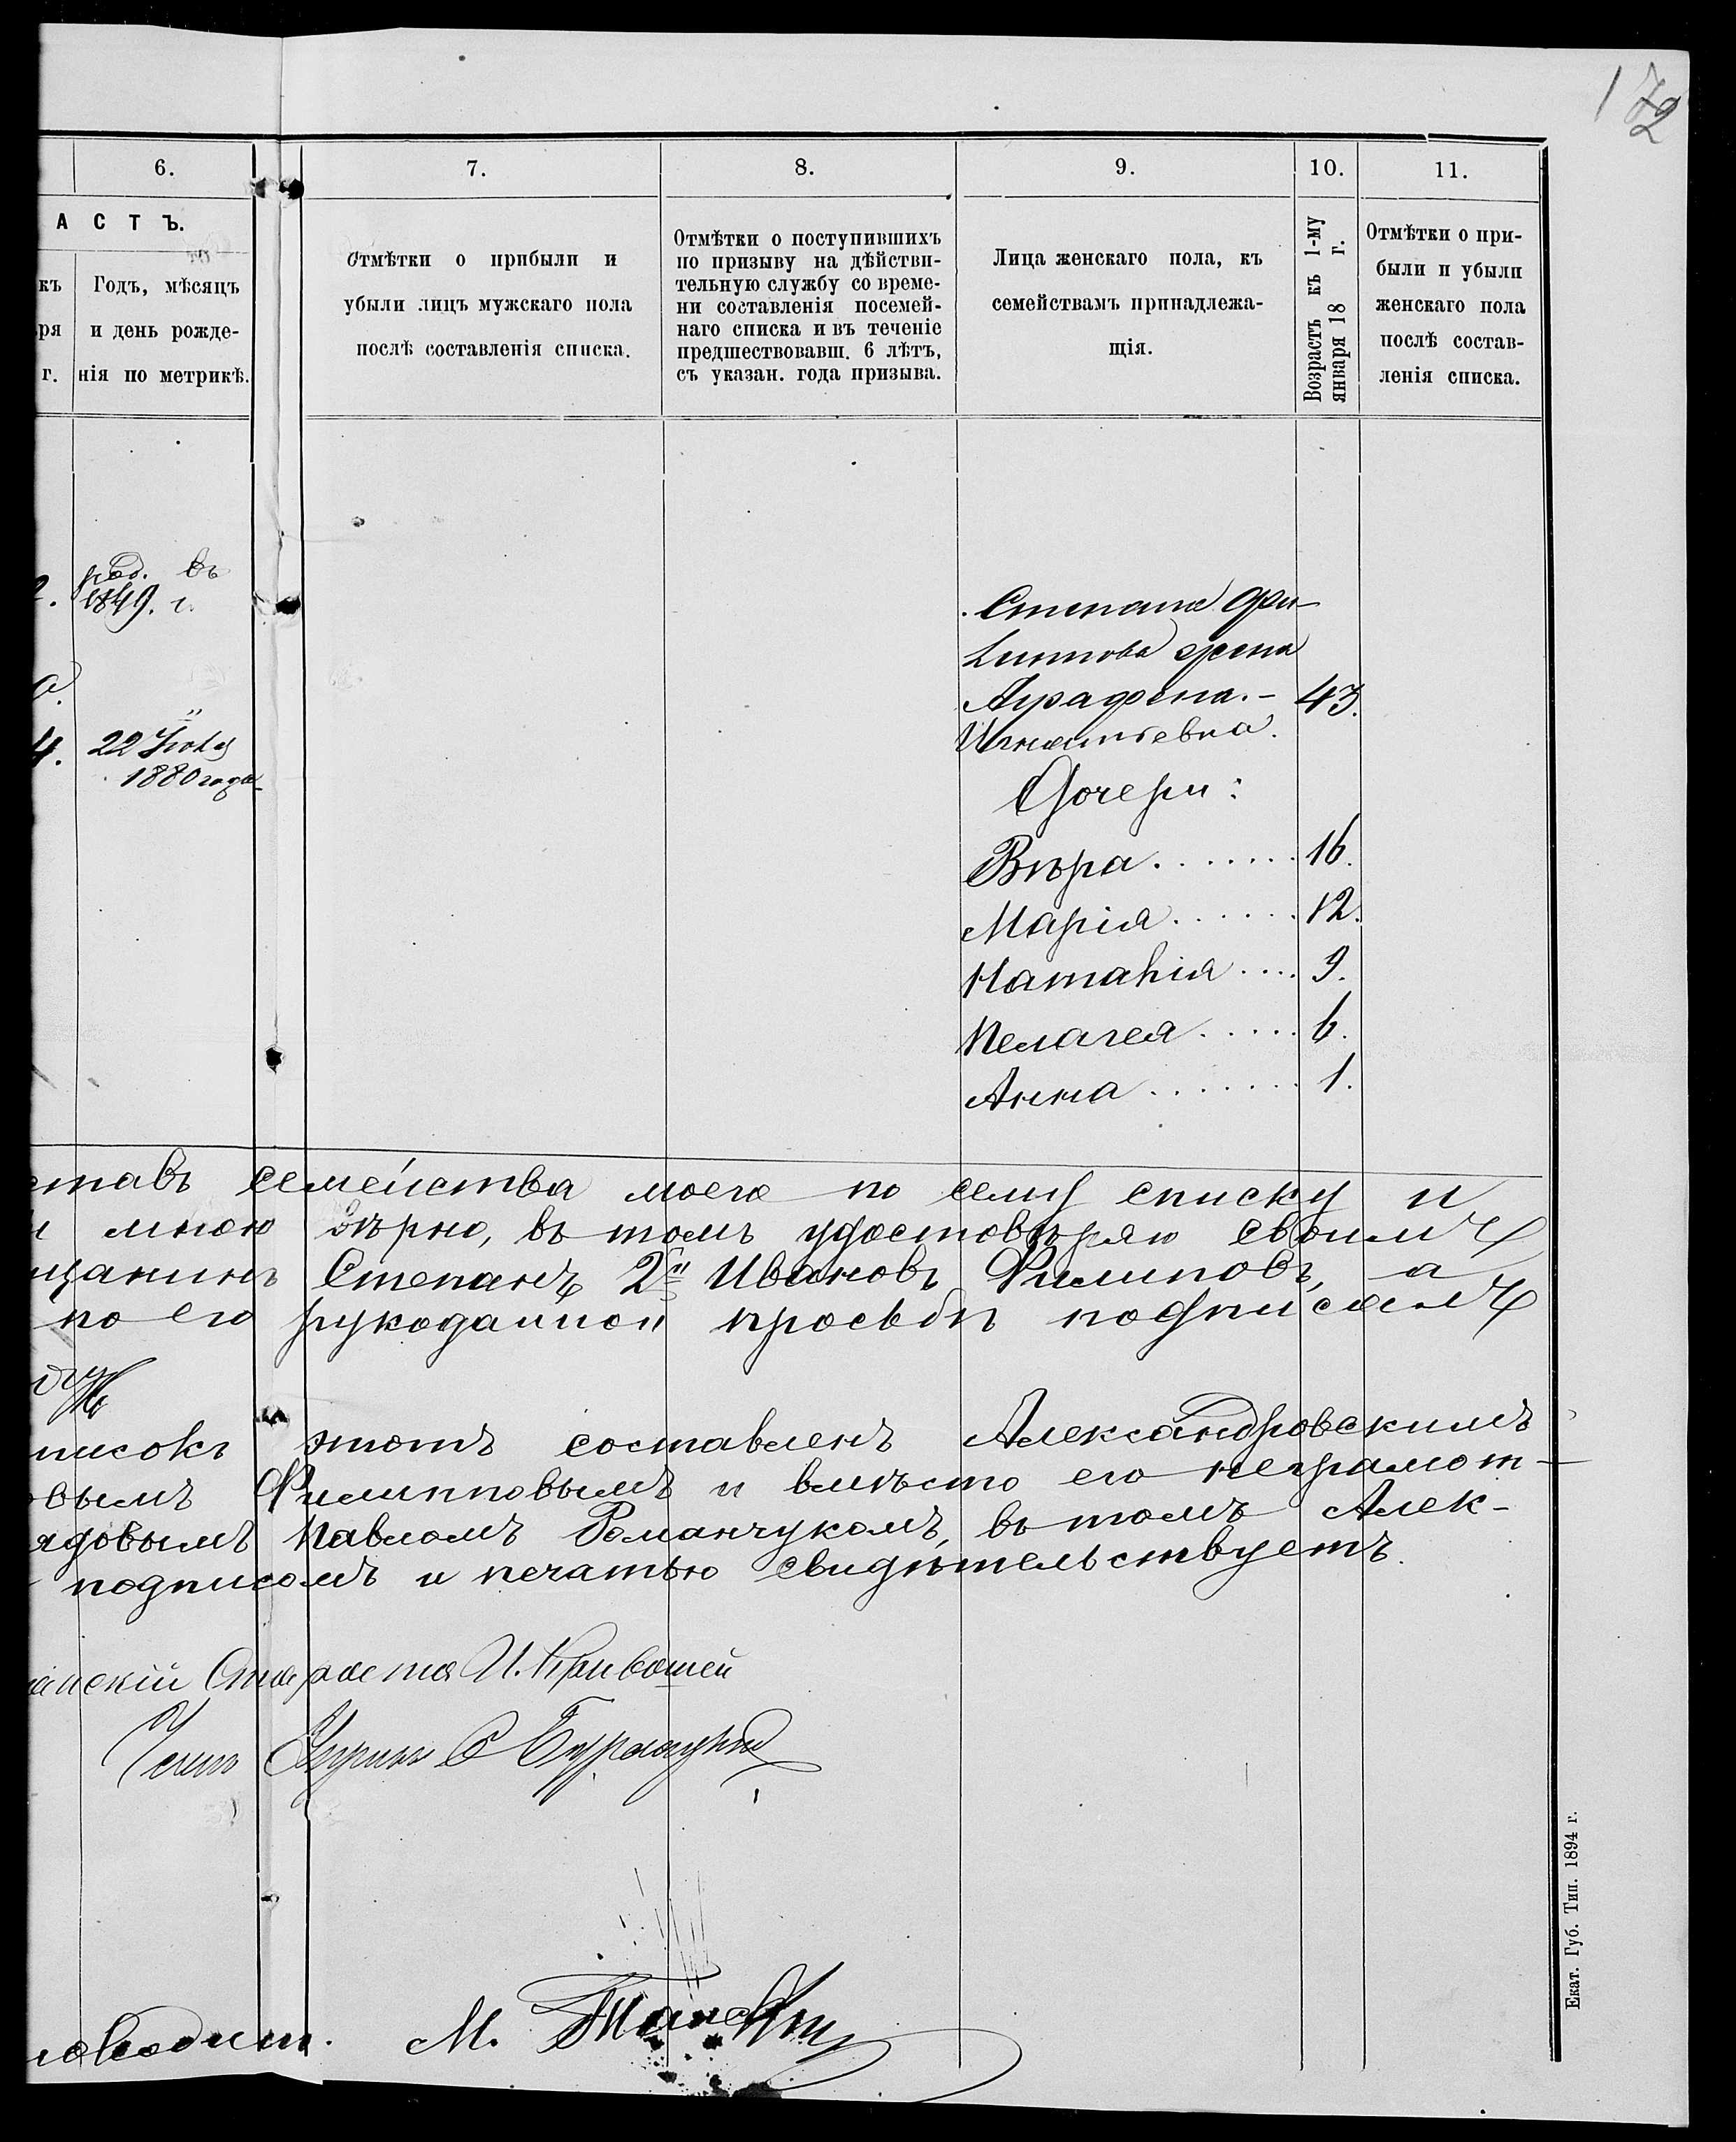 172
6.
7.
8.
9.
10.
11.
А С Т Ъ.
къ
ря
г.
Годъ, мѣсяцъ
и день рожде-
нія по метрикѣ.
Отмѣтки о прибыли и
убыли лицъ мужскаго пола
послѣ составленія списка.
Отмѣтки о поступившихъ
по призыву на дѣйстви-
тельную службу со време-
ни составленія посемей-
наго списка и въ теченіе
предшествовавш. 6 лѣтъ,
съ указан. года призыва.
Лица женскаго пола, къ
семействамъ принадлежа-
щія.
Возрастъ къ 1-му
января 18 г.
Отмѣтки о при-
были и убыли
женскаго пола
послѣ состав-
ленія списка.
род. въ
1849. г.
4. 22 Іюля
1880 года
Степана Фи-
липпова жена
Аграфена. - 43.
Игнатьевна.
Дочери:
Вѣра. . . . . . . 16.
Марія . . . . . . 12.
Наталія . . . . 9.
Пелагея . . . . . 6.
Анна . . . . . . . 1.
ставъ семейства моего по сему списку и
мною вѣрно, въ томъ удостовѣряю своимъ
щанинъ Степанъ 2й Ивановъ Филиповъ, а
по его рукоданной просьбѣ подписалъ
писокъ этотъ составленъ Александровскимъ
овымъ Филипповымъ и вмѣсто его неграмот-
ядовымъ Павломъ Романчукомъ, въ томъ Алек-
подписомъ и печатью свидѣтельствуетъ.
анскій Староста И. Кривошей
Член Управы
М.
Екат. Губ. Тип. 1894 г.